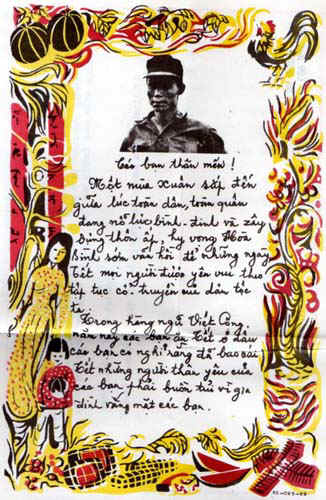 Các bạn thân mến !
Một mùa xuân sắp đến
giữa lúc toàn dân, toàn quân
đang nỗ lực bình-định và xây
dựng thôn ấp, hy vọng Hòa
Bình sớm vãn hồi để những ngày
Tết mọi người được yên vui theo
tập tục cổ-truyền của dân tộc
ta.
Trong hàng ngũ Việt Cộng
năm nay các bạn ăn Tết ở đâu
các bạn có nghĩ rằng đã bao cái
Tết những người thân yêu của
các bạn phải buồn tủi vì gia
đình vắng mặt các bạn.